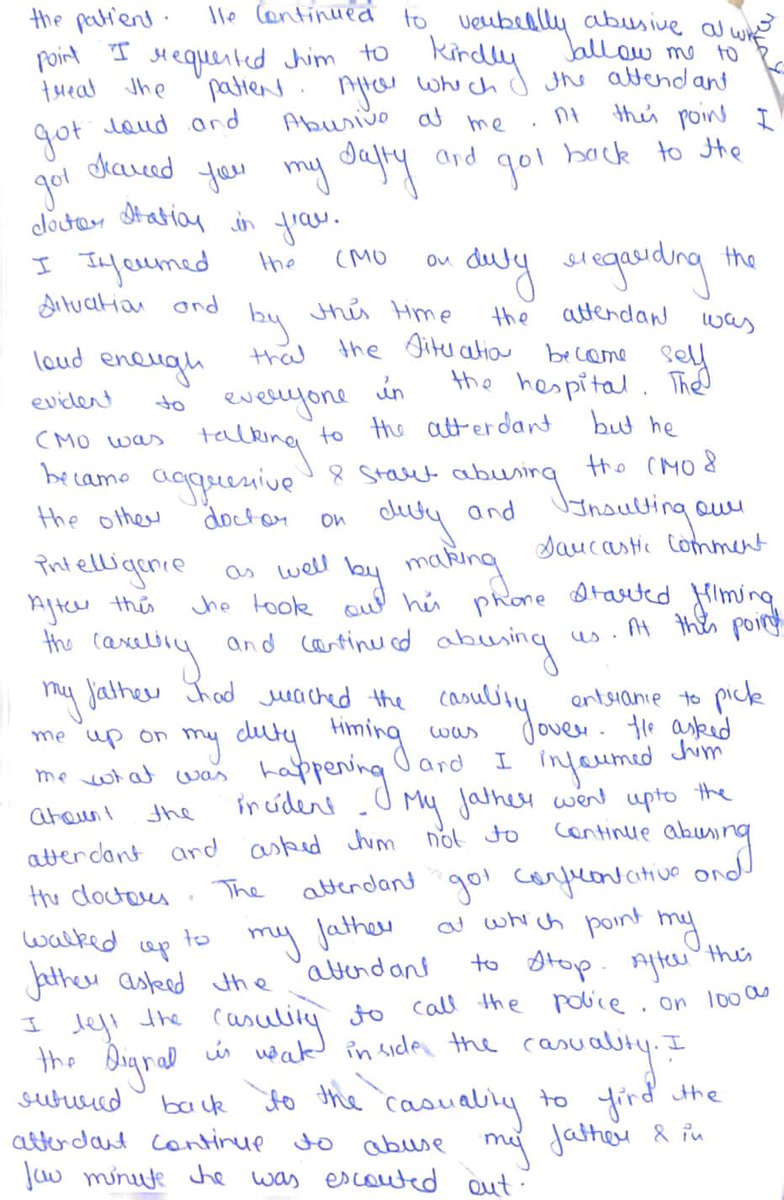 the patient. He continued to verbally abusive at
point I requested him to kindly allow me to
treat the patient. After which the attendant
got loud and Abusive at me. At this point I
got scared for my Safty and got back to the
doctor Station in fear.
I Informed the CMO on duty regarding the
Situation and by this time the attendant was
loud enough that the Situatio become self
evident to everyone in the hospital. The
CMO was talking to the attendant but he
became aggressive & start abusing the CMO &
the other doctor on duty and Insulting our
intelligence as well by making Sarcastic Comment
After this he took out his phone Started filming
the casulity and continued abusing us. At this point
my father had reached the casulity entrance to pick
me up on my duty timing was over. He asked
me what was happening and I informed him
about the incident. My father went upto the
attendant and asked him not to continue abusing
the doctors. The attendant got confrontative and
walked up to my father at which point my
father asked the attendant to Stop. After this
I left the casulity to call the police. on 100 as
the Signal is weak inside the casuality. I
returned back to the casuality to find the
attendant continue to abuse my father & in
few minute he was escorted out.